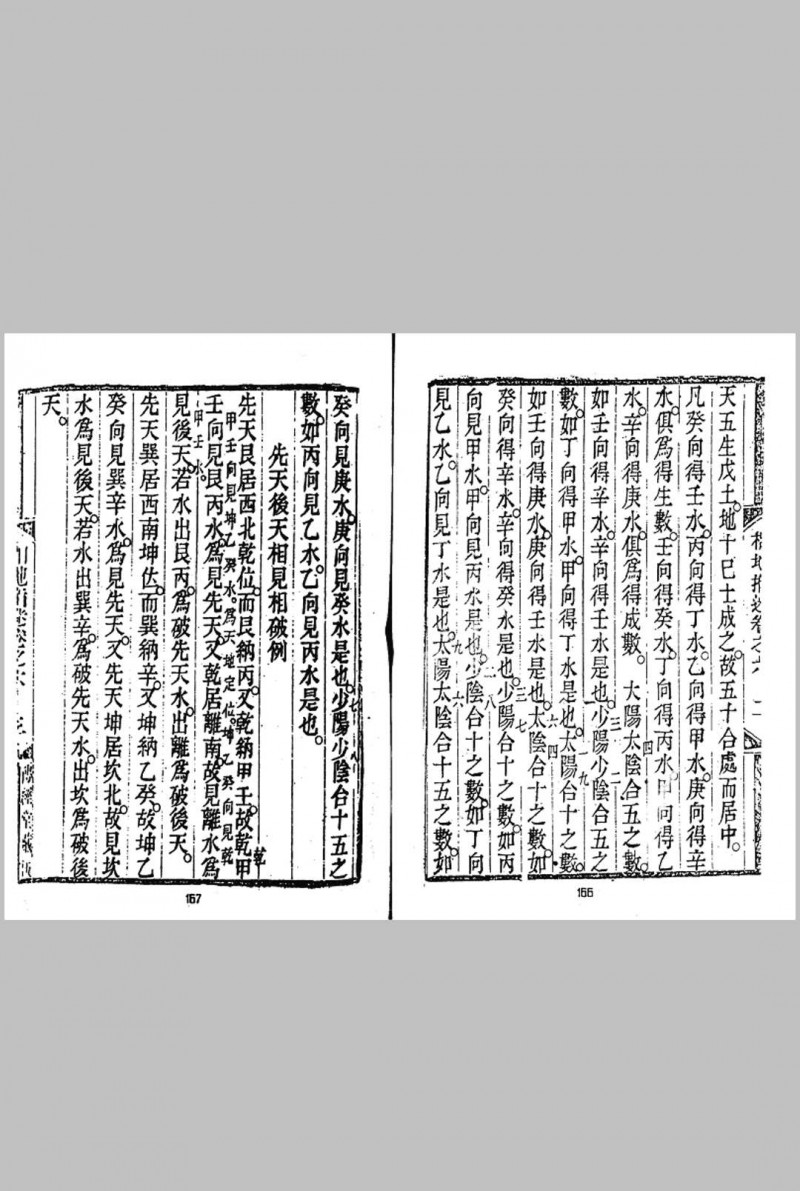 天五生戊土。地十巳土成之。故五十合處而居中。
凡癸向得壬水。丙向得丁水。乙向得甲水。庚向得辛
水。俱爲得生數。壬向得癸水。丁向得丙水。甲向得乙
水。辛向得庚水。俱爲得成數。大陽太陰合五之數。
如壬向得辛水。辛向得壬水是也。少陽少陰合五之
數。如丁向得甲水。甲向得丁水是也。太陽合十之數。
如壬向得庚水。庚向得壬水是也。太陰合十之數。如
癸向得辛水。辛向得癸水是也。少陽合十之數。如丙
向見甲水。甲向見丙水是也。少陰合十之數。如丁向
見乙水。乙向見丁水是也。太陽太陰合十五之數。如
166
癸向見庚水。庚向見癸水是也。少陽少陰合十五之
數。如丙向見乙水。乙向見丙水是也。
先天後天相見相破例
先天艮居西北乾位。而艮納丙。又乾納甲壬。故乾甲
壬向見艮丙水。爲見先天。又乾居離南。故見離水爲
甲壬向見坤乙癸水。爲天地定位。坤乙癸向見乾
甲壬水。
見後天。若水出艮丙。爲破先天水。出離爲破後天。
先天巽居西南坤位。而巽納辛。又坤納乙癸。故坤乙
癸向見巽辛水。爲見先天。又先天坤居坎北。故見坎
水爲見後天。若水出巽辛。爲破先天水。出坎爲破後
天。
167